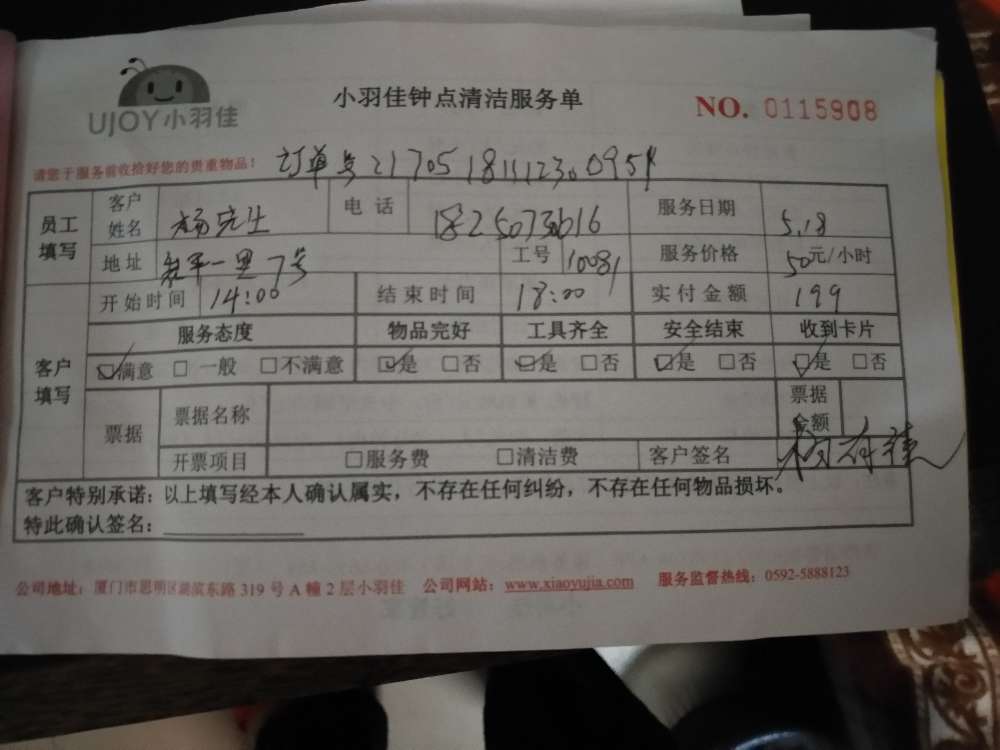 UJOY小羽佳
小羽佳钟点清洁服务单
NO. 0115908
请您于服务前收拾好您的贵重物品！
订单号
员工填写 客户姓名 杨先生 电话 服务日期 5.18
地址 一里7号 工号 10081 服务价格 50元/小时
客户填写 开始时间 14:00 结束时间 18:00 实付金额 199
服务态度 物品完好 工具齐全 安全结束 收到卡片
☑满意 □一般 □不满意 ☑是 □否 ☑是 □否 ☑是 □否 ☑是 □否
票据 票据名称 票据金额
开票项目 □服务费 □清洁费 客户签名
客户特别承诺：以上填写经本人确认属实，不存在任何纠纷，不存在任何物品损坏。
特此确认签名：
公司地址：厦门市思明区湖滨东路 319 号 A 幢 2 层小羽佳 公司网站：www.xiaoyujia.com 服务监督热线：0592-5888123